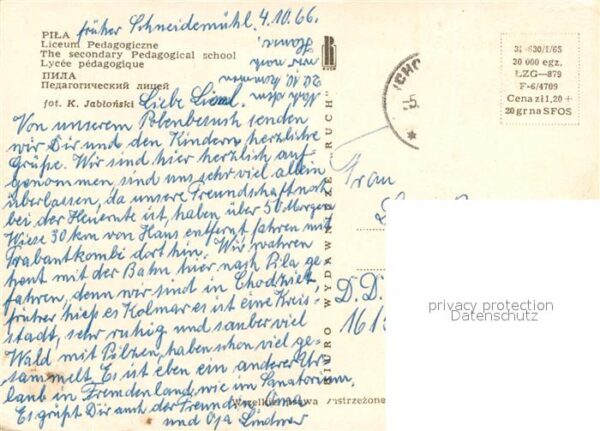 früher Schneidemühl 4.10.66.
PIŁA
Liceum Pedagogiczne
The secondary Pedagogical school
Lycée pédagogique
ПИЛА
Педагогический лицей
fot. K. Jabłoński
Liebe Liesel
Von unserem Polenbesuch senden
wir Dir und den Kindern herzliche
Grüße. Wir sind hier herzlich auf-
genommen, sind uns sehr viel allein
überlassen, da unsere Freundschaft noch
bei der Heuernte ist, haben über 50 Morgen
Wiese 30 km von Haus entfernt fahren mit
Trabantkombi dort hin. Wir waren
heut mit der Bahn hier nach Pila ge-
fahren, denn wir sind in Chodzież
früher hieß es Kolmar es ist eine Kreis-
stadt, sehr ruhig und sauber viel
Wald mit Pilzen, haben schon viel ge-
sammelt. Es ist eben ein anderer Ur-
laub in Fremdenland, wie im Sanatorium.
Es grüßt Dir auch der Freund, Oma
und Opa Lindner
wir noch
RUCH
BIURO WYDAWNICZE "RUCH"
CHO
5.
31-630/I/65
30 000 egz.
ŁZG—879
F-6/4709
Cena zł 1,20 +
20 gr na SFOS
Frau
D.D.
161
privacy protection
Datenschutz
Wszelkie prawa zastrzeżone